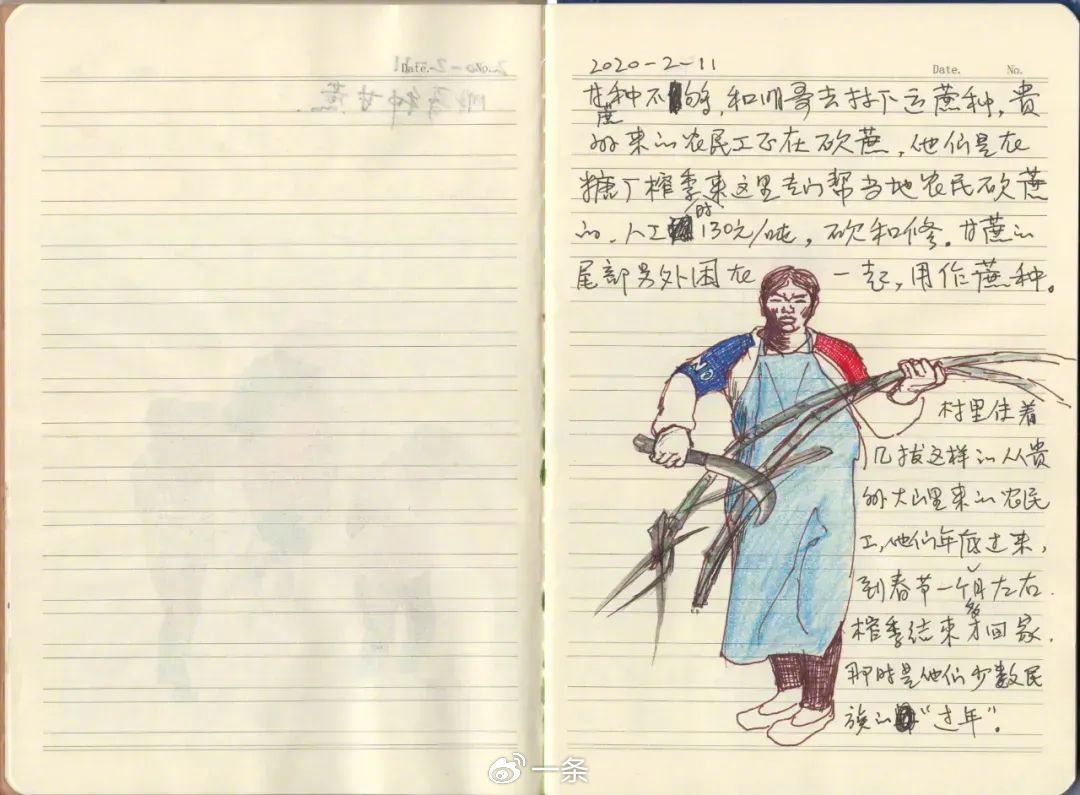 2020-2-11
Date. No.
甘蔗种不够,和明哥去村下运蔗种,贵
州来的农民工正在砍蔗,他们是在
糖厂榨季时来这里专门帮当地农民砍蔗
的。人工130元/吨,砍和修。甘蔗的
尾部另外困在一起,用作蔗种。
村里住着
几拔这样的从贵
州大山里来的农民
工,他们年底过来,
到春节一个多月左右.
榨季结束才回家.
那时是他们少数民
族的“过年”。
一条